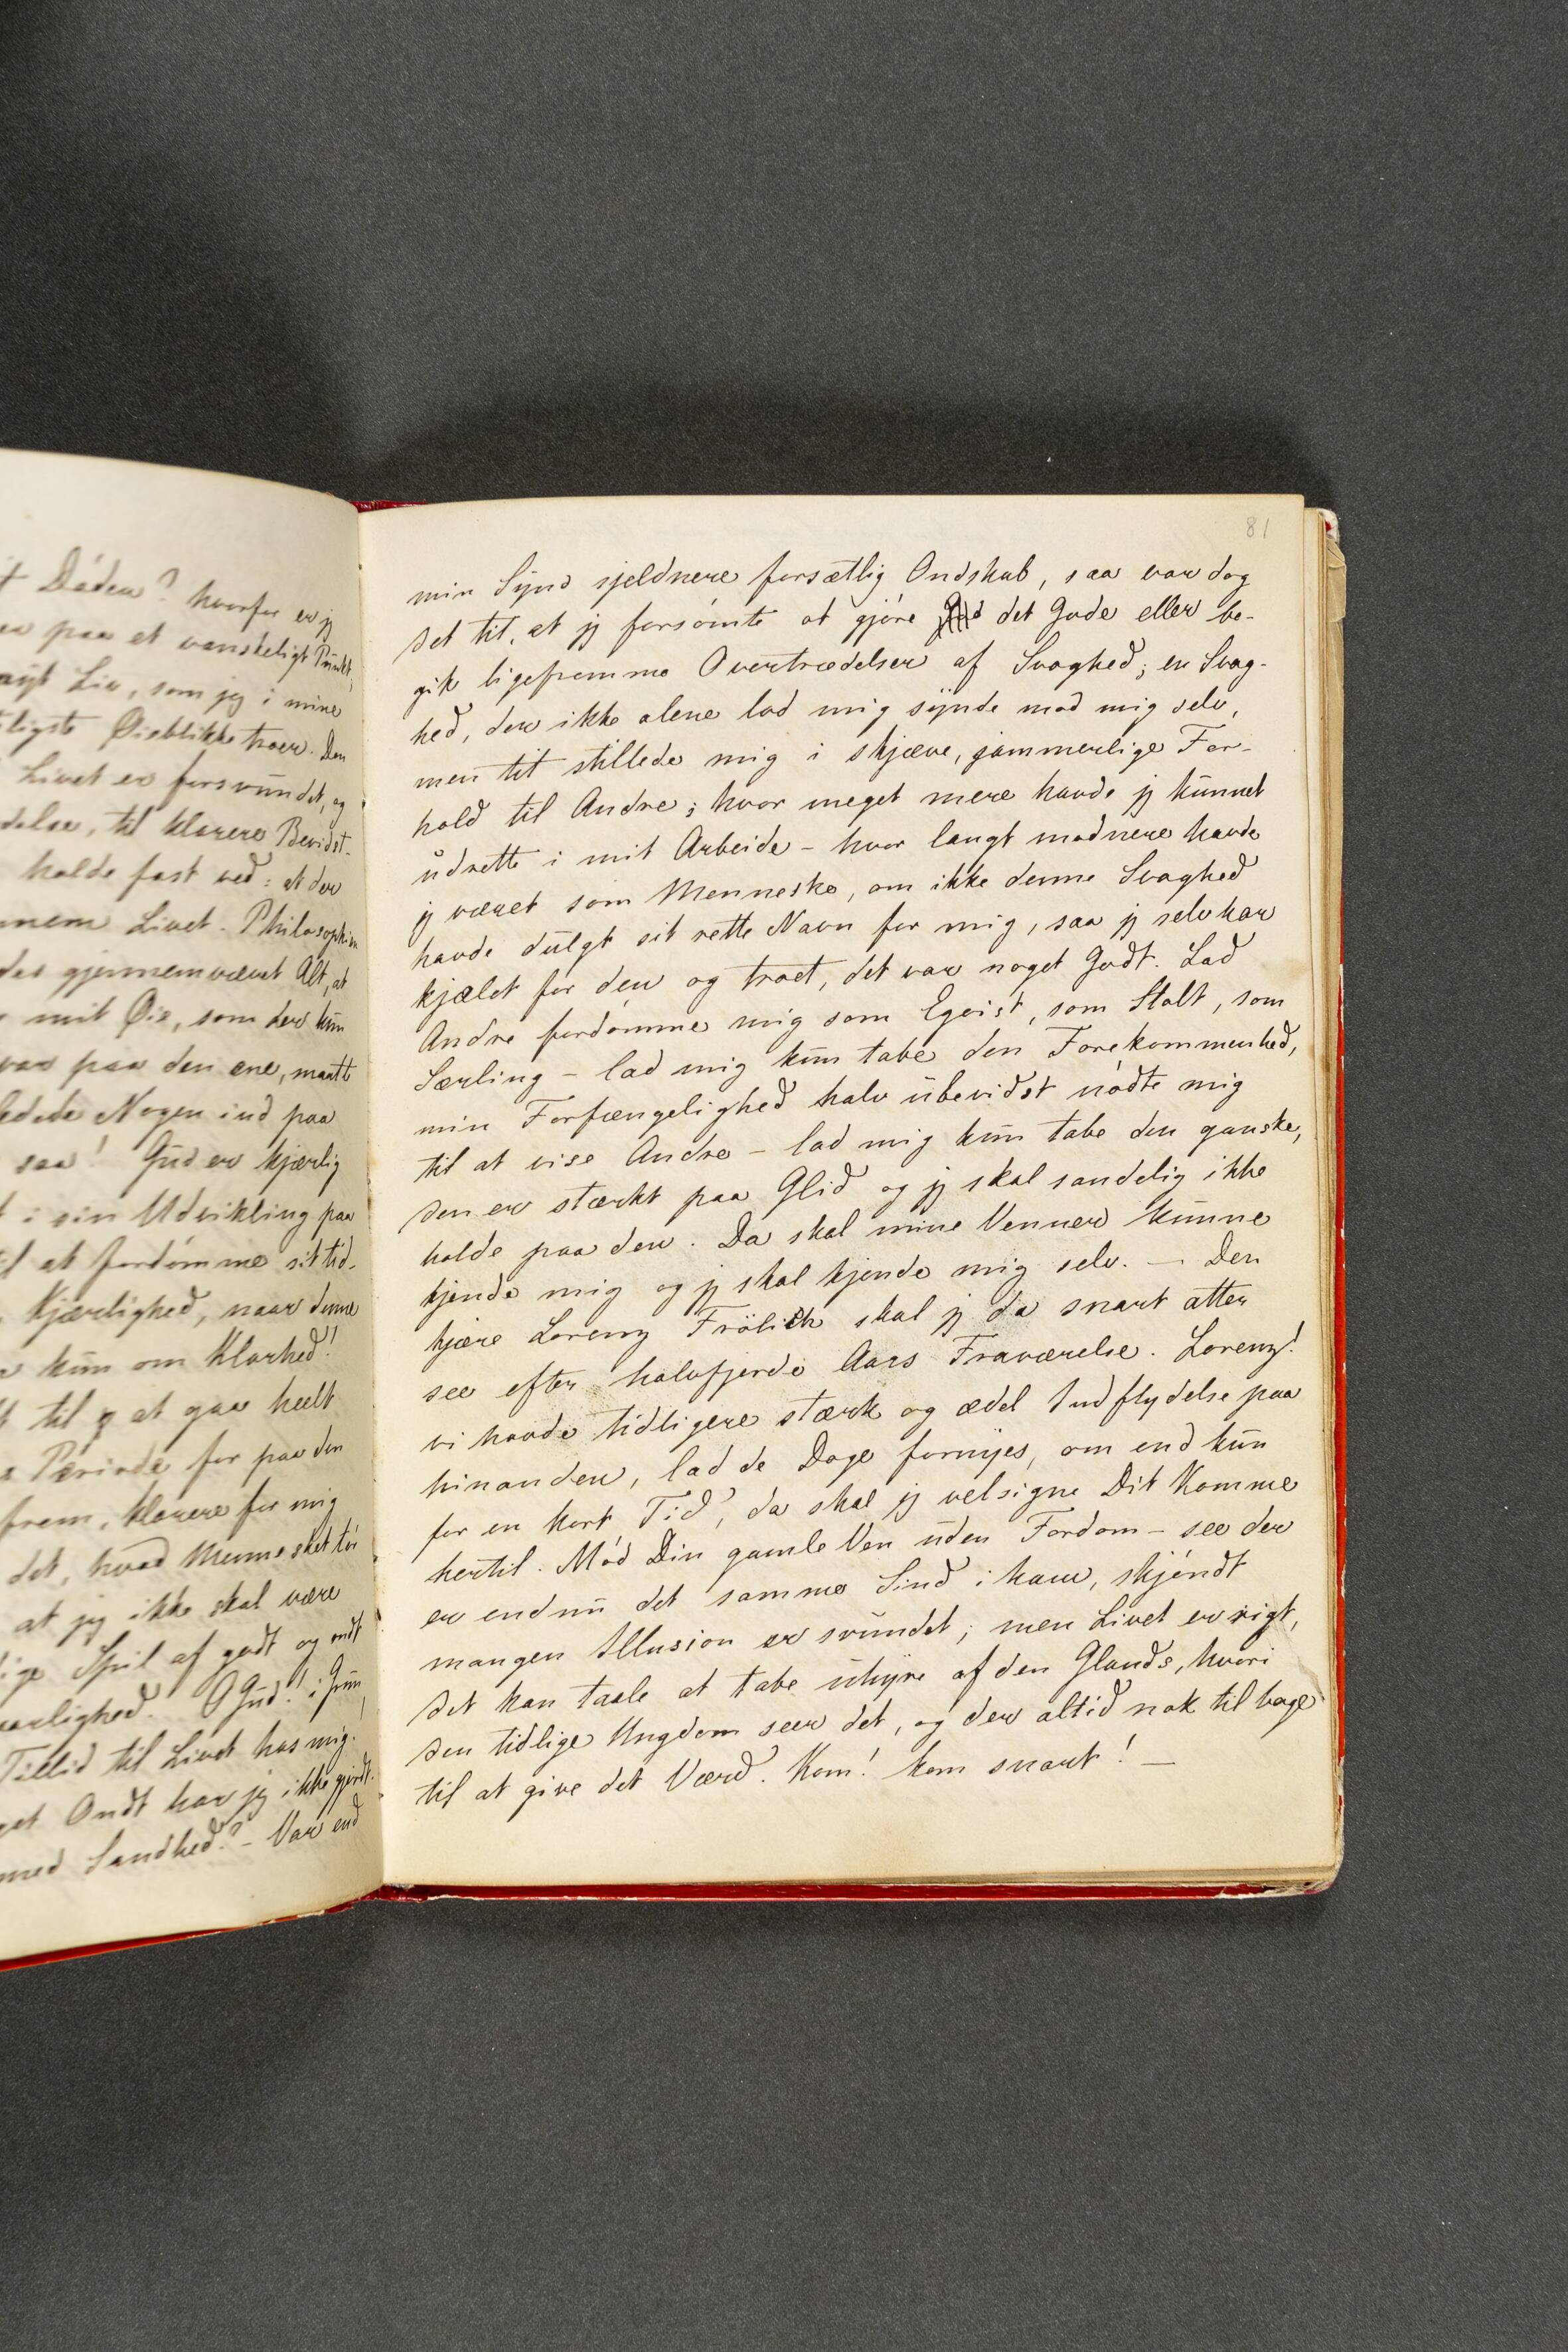 t Döden? hvorfor er jg
er paa et vanskeligt Punkt,
nyt Liv, som jeg i mine
ligste Øieblikke troer. Den
Livet er forsvundet, og
delse, til klarere Bevidst-
holde fast ved: at der
nnem Livet. Philosophien
des gjennemvævet Alt, at
mit Øie, som der kun
var paa den ene, maatte
ledede Nogen ind paa
saa! Gud er kjærlig
t i sin Udvikling paa
il at fordömme sit tid-
Kjærlighed, naar denne
kun om Klarhed!
t til at gaa heelt
Periode for paa den
frem, klarere for mig
det, hvad Mennesket tör
at jeg ikke skal være
lige Spil af godt og ondt
arlighed. O Gud! i Grun
Tillid til Livet hos mig.
get Ondt har jg ikke gjordt.
med Sandhed? - Var end
81
min Synd sjeldnere forsætlig Ondskab, saa var dog
det tit, at jg forsömte at gjöre det Gode eller be-
gik ligefremme Overtrædelser af Svaghed; en Svag-
hed, der ikke alene lod mig synde mod mig selv,
men tit stillede mig i skjæve, jammerlige For-
hold til Andre; hvor meget mere havde jg kunnet
udrette i mit Arbeide - hvor langt modnere havde
jg været som Menneske, om ikke denne Svaghed
havde dulgt sit rette Navn for mig, saa jg selv har
kjælet for den og troet, det var noget Godt. Lad
Andre fordömme mig som Egoist, som Stolt, som
Særling - lad mig kun tabe den Forekommenhed,
min Forfængelighed halv ubevidst nödte mig
til at vise Andre - lad mig kun tabe den ganske,
den er stærkt paa Glid og jg skal sandelig ikke
holde paa den. Da skal mine Venner kunne
kjende mig og jg skal kjende mig selv. - Den
kjære Lorenz Frölich skal jg da snart atter
see efter halvfjerde Aars Fraværelse. Lorenz!
vi havde tidligere stærk og ædel Indflydelse paa
hinanden, lad de Dage fornyes, om end kun
for en kort Tid, da skal jg velsigne Dit Komme
hertil. Möd Din gamle Ven uden Fordom - see der
er endnu det samme Sind i ham, skjöndt
mangen Illusion er svundet; men Livet er rigt,
det kan taale at tabe uhyre af den Glands, hvori
den tidlige Ungdom seer det, og der altid nok tilbage
til at give det Værd. Kom! kom snart! -